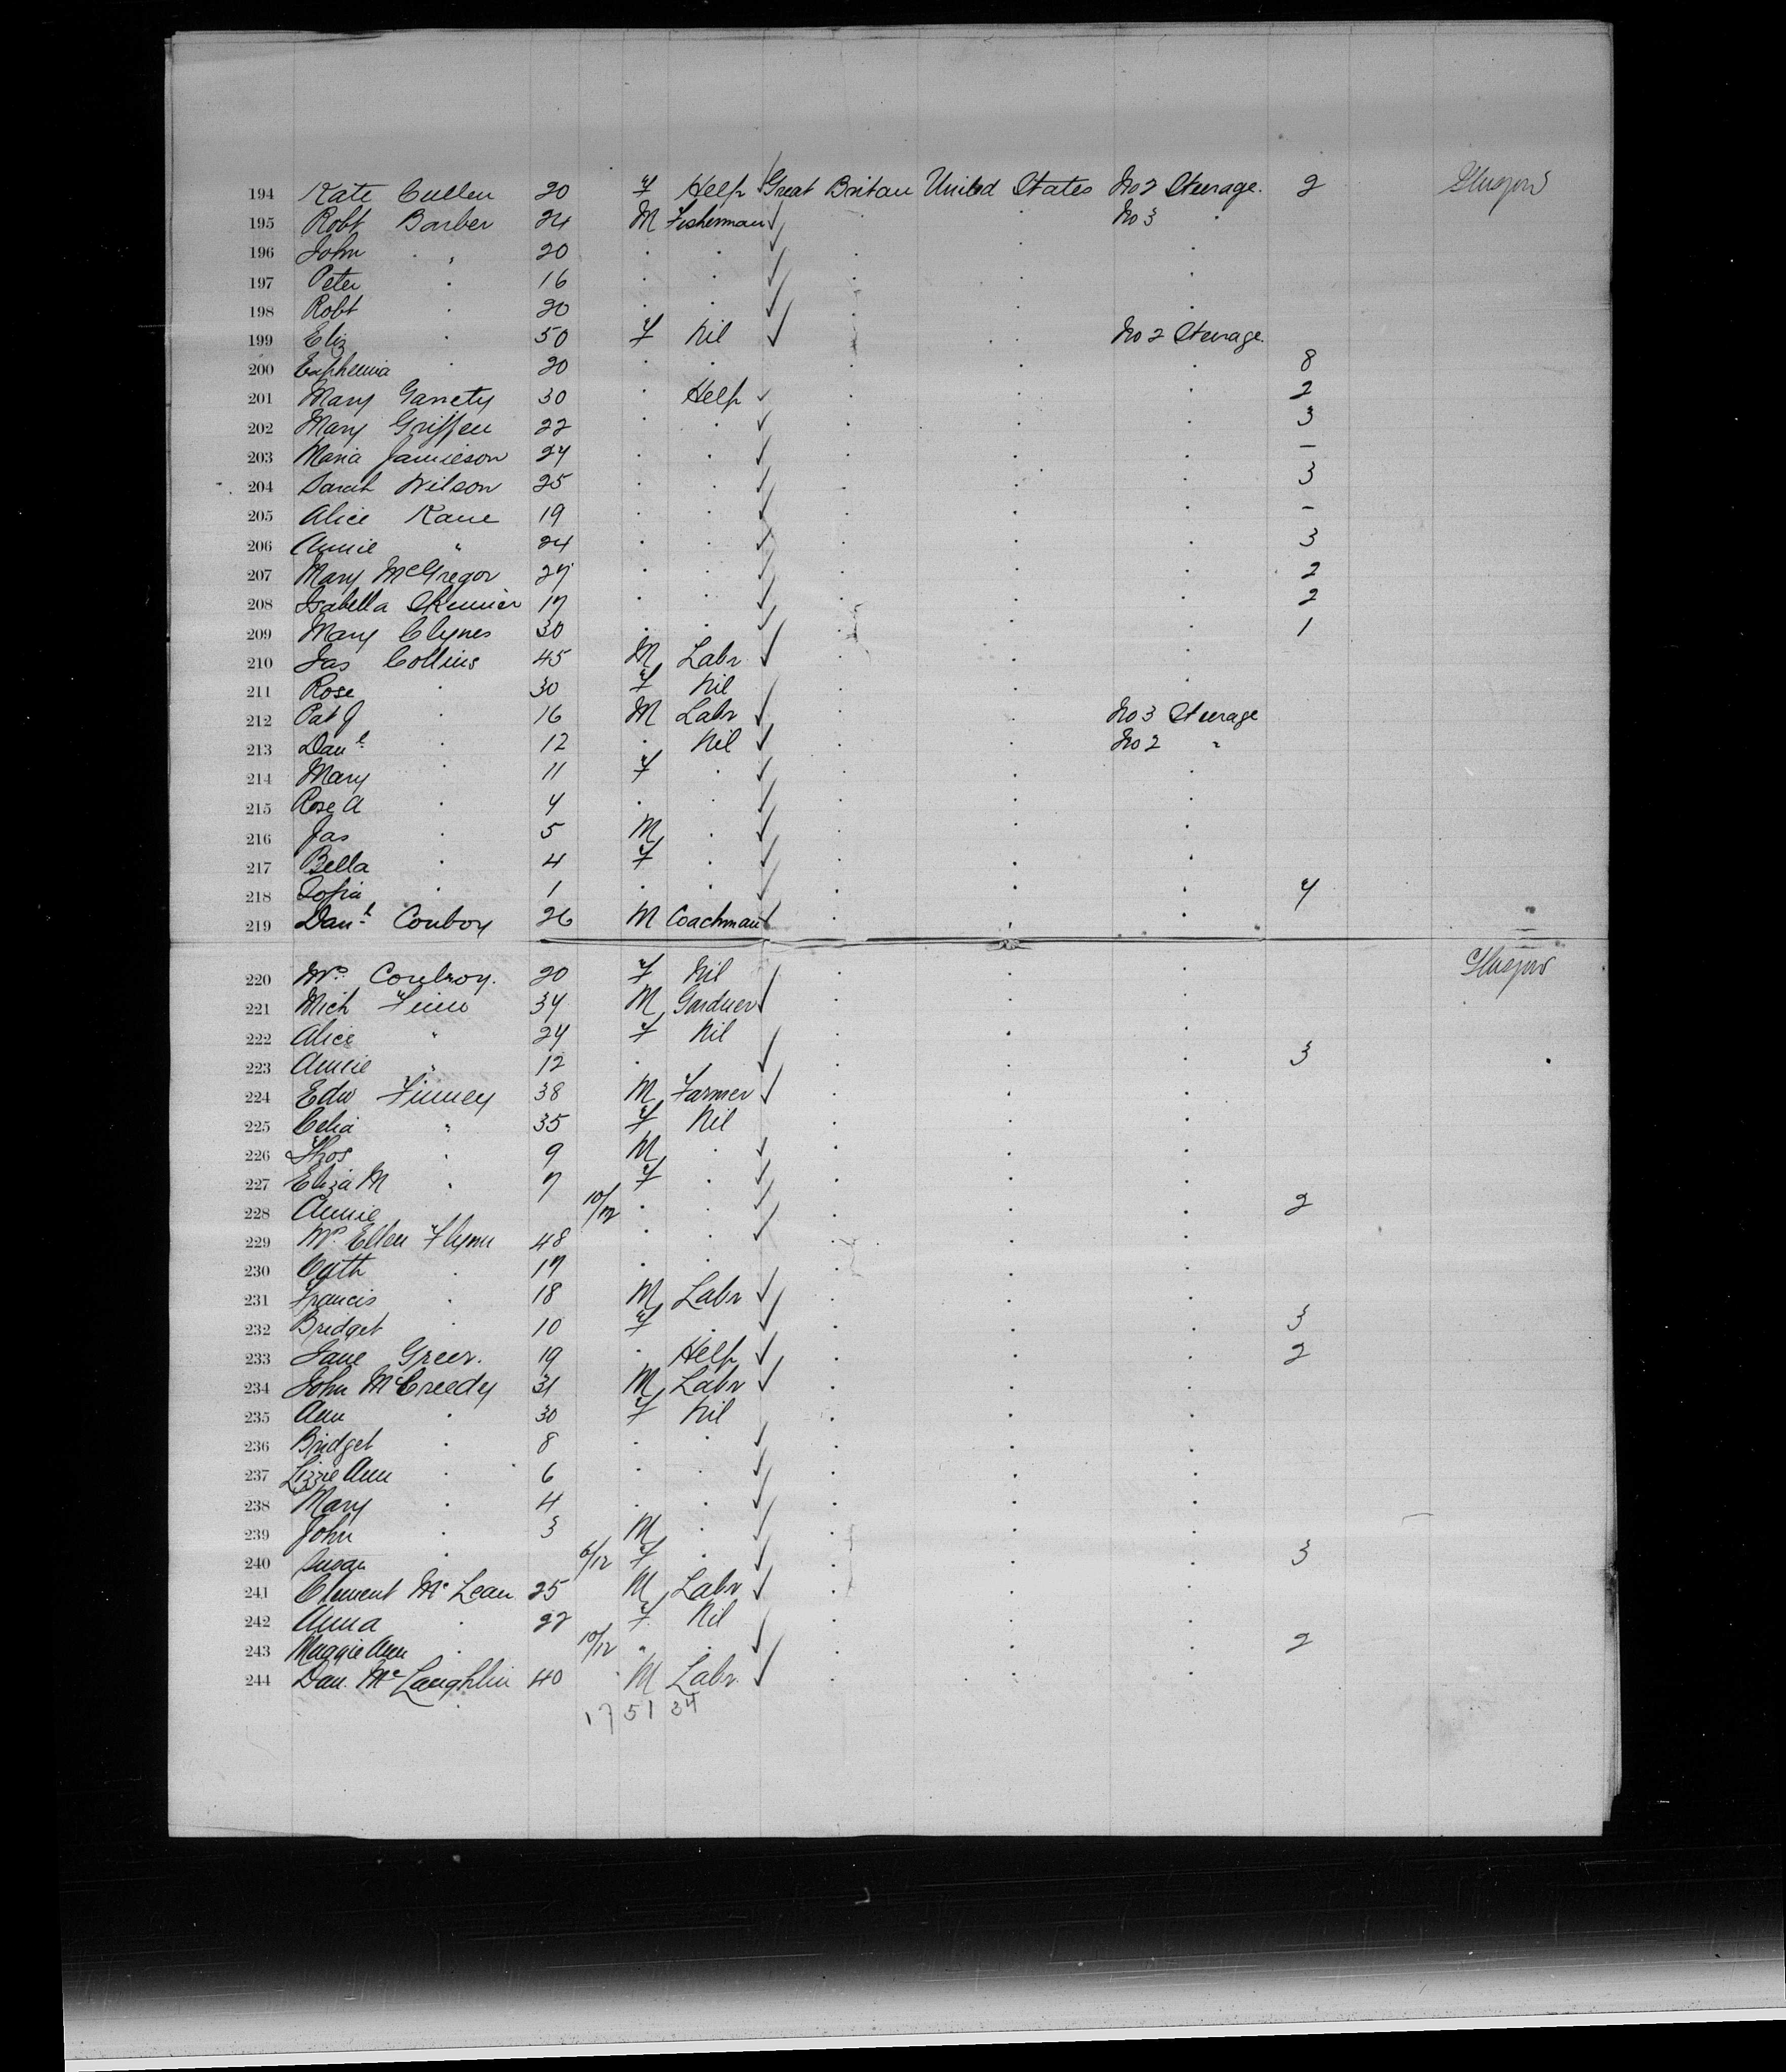 194 Kate Cullen 20 F Help Great Britan United States No 2 Steerage. 2 Glasgow
195 Robt Barber 24 M Fisherman No 3 "
196 John " 20
197 Peter " 16
198 Robt " 20
199 Eliz " 50 F Nil No 2 Steerage.
200 Euphemia " 20 8
201 Mary Garrety 30 Help 2
202 Mary Griffen 22 3
203 Maria Jamieson 24 –
204 Sarah Wilson 25 3
205 Alice Kane 19 –
206 Annie " 24 3
207 Mary McGregor 27 2
208 Isabella Skinner 17 2
209 Mary Clynes 30 1
210 Jas Collins 45 M Labr
211 Rose " 30 F Nil
212 Pat J " 16 M Labr No 3 Steerage
213 Danl " 12 Nil No 2 "
214 Mary " 11 F
215 Rose A "
216 Jas " 5 M
217 Bella " 4 F
218 " 1
219 Danl Conboy 26 M Coachman
220 Mrs Conboy. 20 F Nil Glasgow
221 Mich Finn 34 M Gardner
222 Alice " 24 F Nil
223 Annie " 12 3
224 Edw Finney 38 M Farmer
225 Celia " 35 F Nil
226 Thos " 9 M
227 Eliza M " 7 F
228 Annie 10/12 2
229 Mrs Ellen Flynn 48
230 Cath " 17
231 Francis " 18 M Labr
232 Bridget " 10 F 3
233 Jane Greer. 19 Help 2
234 John McCreedy 31 M Labr
235 Ann " 30 F Nil
236 Bridget " 8
237 Lizzie Ann " 6
238 Mary " 4
239 John " 3 M
240 Susan " 6/12 F 3
241 Clement McLean 25 M Labr
242 Anna " 22 F Nil
243 Maggie Ann " 10/12 " 2
244 Dan. McLaughlin 40 M Labr.
17 51 34